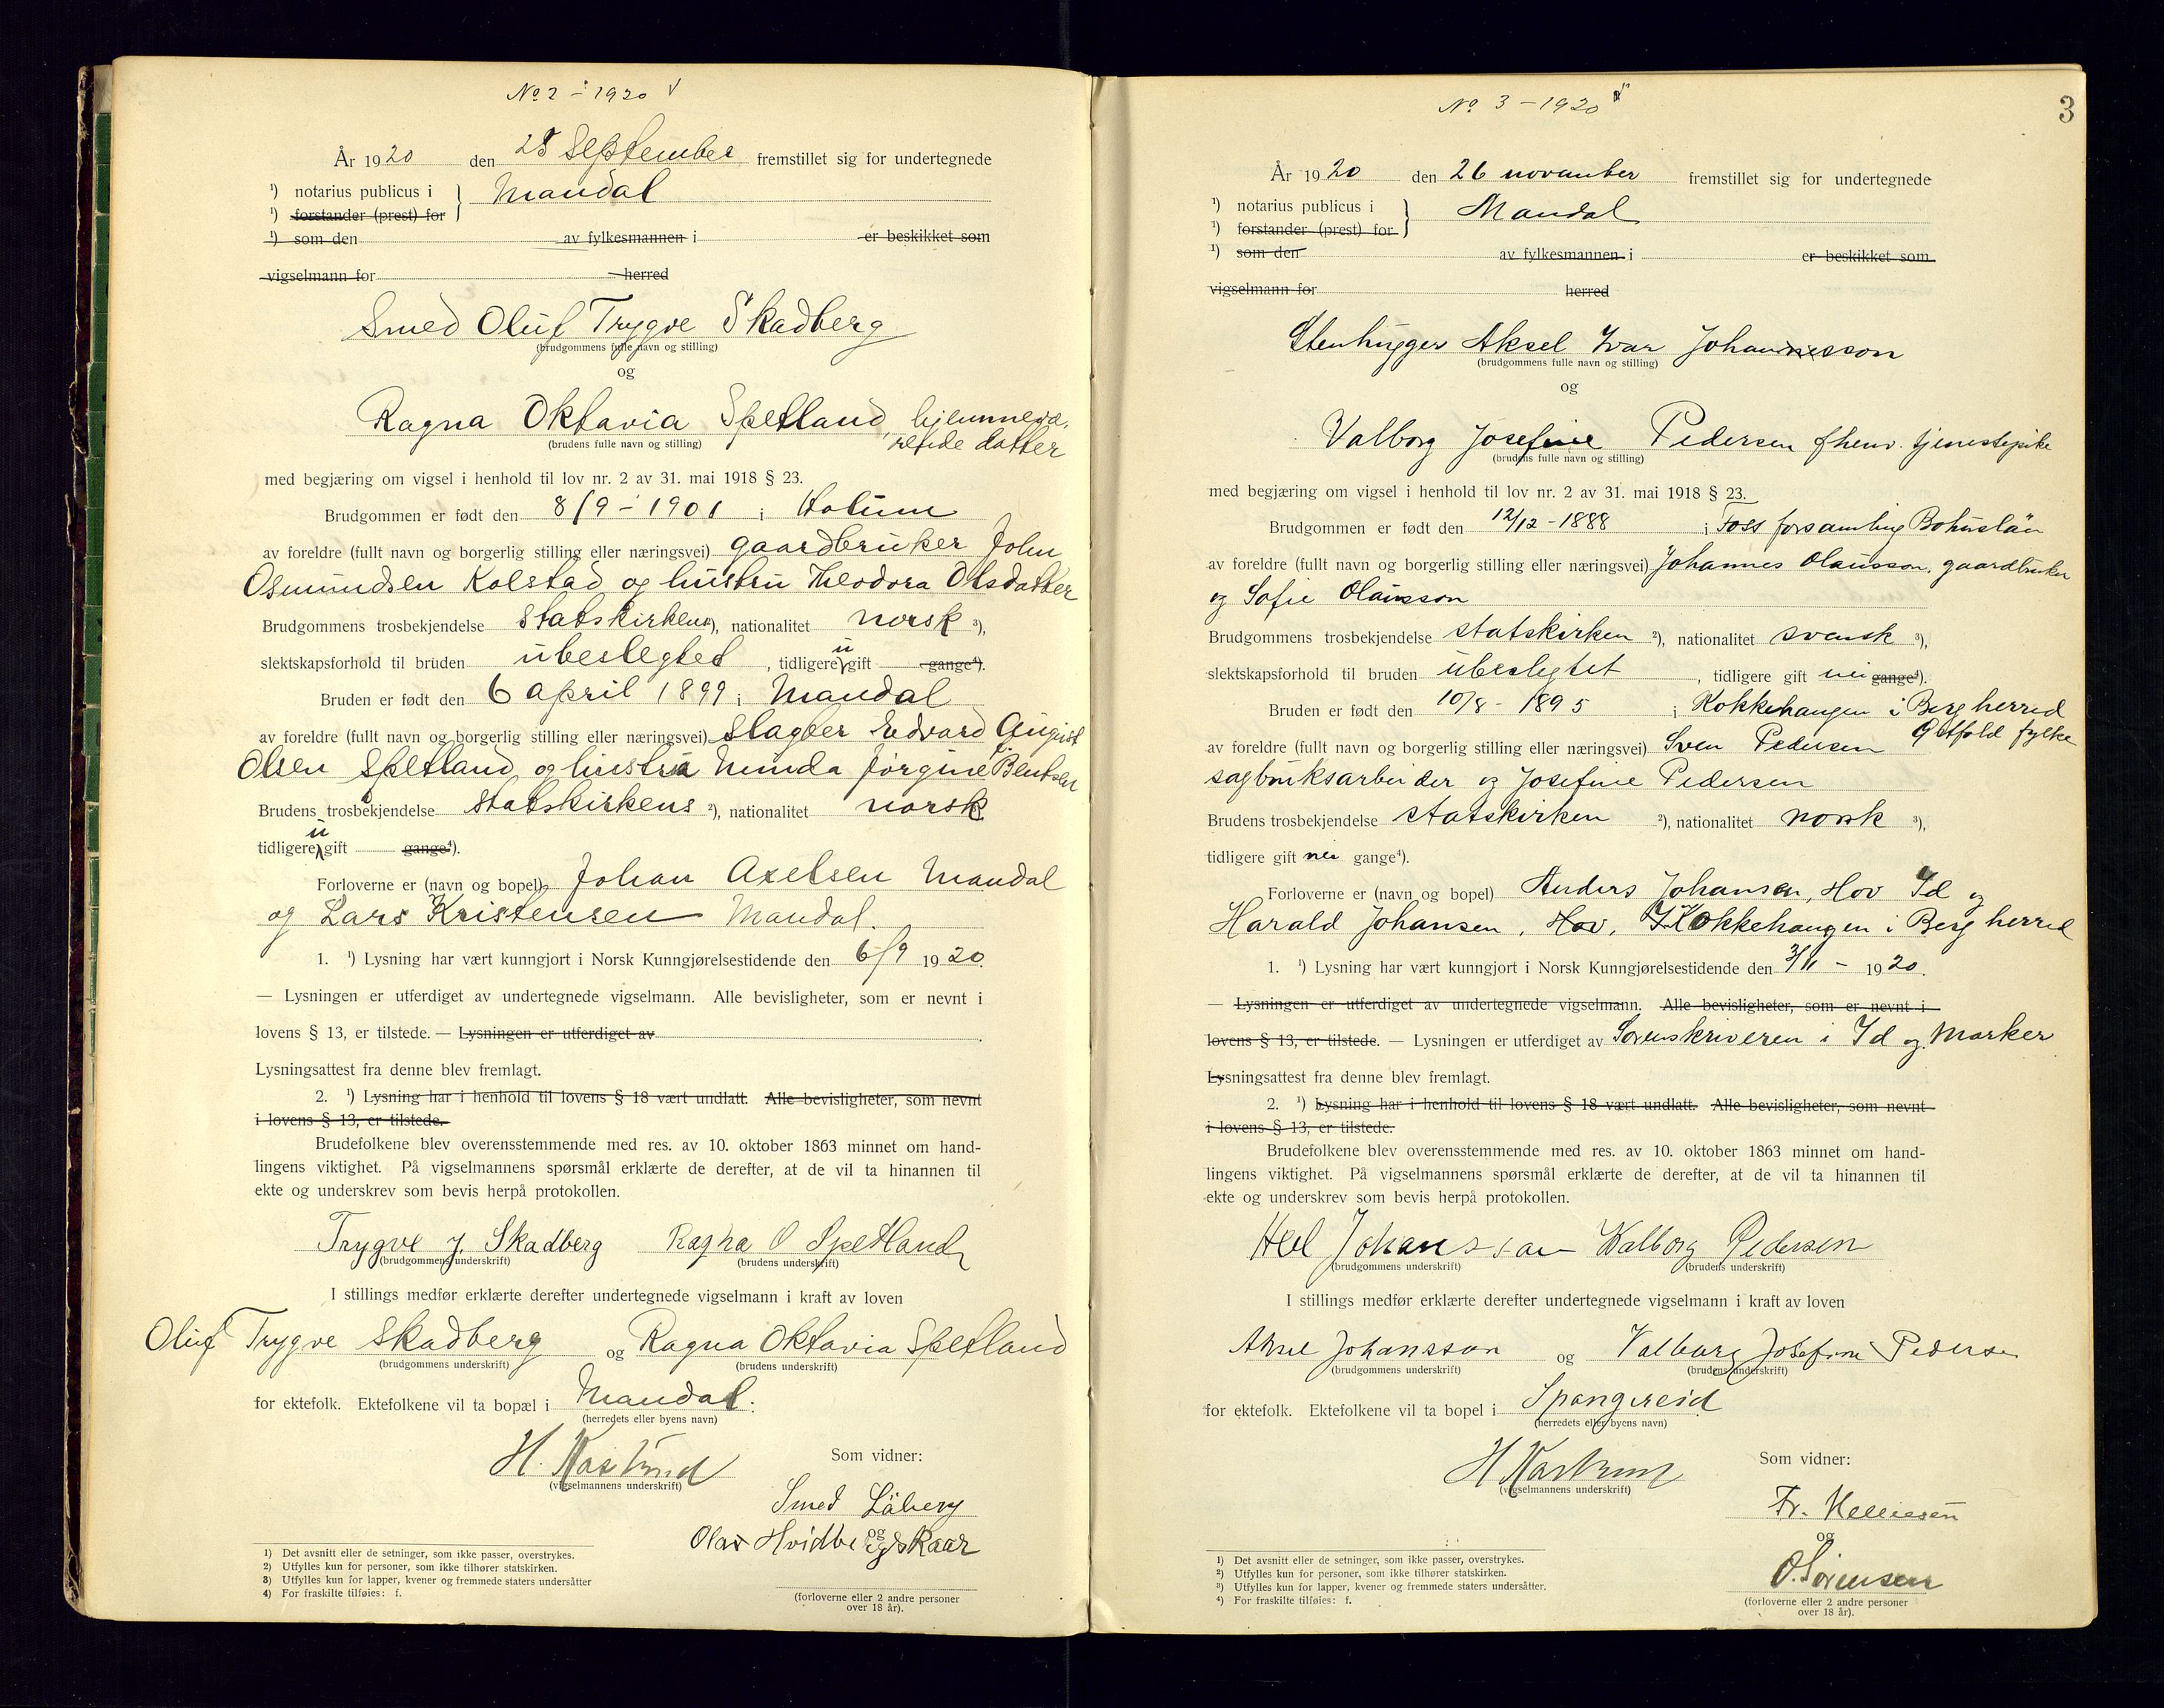 No 2 - 1920 V
År 1920 den 28 September fremstillet sig for undertegnede
¹) notarius publicus i } Mandal
¹) forstander (prest) for
¹) som den av fylkesmannen i er beskikket som
vigselmann for herred
Smed Oluf Trygve Skadberg
(brudgommens fulle navn og stilling)
og
Ragna Oktavia Spetland, hjemmevæ-
rende datter
(brudens fulle navn og stilling)
med begjæring om vigsel i henhold til lov nr. 2 av 31. mai 1918 § 23.
Brudgommen er født den 8/9 - 1901 i Holum
av foreldre (fullt navn og borgerlig stilling eller næringsvei) gaardbruker John
Osmundsen Kolstad og hustru Theodora Olsdatter
Brudgommens trosbekjendelse Statskirkens ²), nationalitet norsk ³),
slektskapsforhold til bruden ubeslegted, tidligere u gift gange⁴).
Bruden er født den 6 april 1899 i Mandal
av foreldre (fullt navn og borgerlig stilling eller næringsvei) Slagter Edvard August
Olsen Spetland og hustru Minda Jörgine Bentsen
Brudens trosbekjendelse Statskirkens ²), nationalitet norsk
tidligere u gift gange⁴).
Forloverne er (navn og bopel) Johan Axelsen Mandal
og Lars Kristensen Mandal.
1. ¹) Lysning har vært kunngjort i Norsk Kunngjørelsestidende den 6/9 1920.
— Lysningen er utferdiget av undertegnede vigselmann. Alle bevisligheter, som er nevnt i
lovens § 13, er tilstede. — Lysningen er utferdiget av .
Lysningsattest fra denne blev fremlagt.
2. ¹) Lysning har i henhold til lovens § 18 vært undlatt. Alle bevisligheter, som nevnt
i lovens § 13, er tilstede.
Brudefolkene blev overensstemmende med res. av 10. oktober 1863 minnet om hand-
lingens viktighet. På vigselmannens spørsmål erklærte de derefter, at de vil ta hinannen til
ekte og underskrev som bevis herpå protokollen.
Trygve J. Skadberg Ragna O Spetland
(brudgommens underskrift) (brudens underskrift)
I stillings medfør erklærte derefter undertegnede vigselmann i kraft av loven
Oluf Trygve Skadberg og Ragna Oktavia Spetland
(brudgommens underskrift) (brudens underskrift)
for ektefolk. Ektefolkene vil ta bopæl i Mandal.
(herredets eller byens navn)
H. Kastrud Som vidner:
(vigselmannens underskrift)
Smed
og
Olav
(forloverne eller 2 andre personer
over 18 år).
1) Det avsnitt eller de setninger, som ikke passer, overstrykes.
2) Utfylles kun for personer, som ikke tilhører statskirken.
3) Utfylles kun for lapper, kvener og fremmede staters undersåtter
4) For fraskilte tilføies: f.
3
No 3 - 1920
År 1920 den 26 november fremstillet sig for undertegnede
¹) notarius publicus i } Mandal
¹) forstander (prest) for
¹) som den av fylkesmannen i er beskikket som
vigselmann for herred
Stenhugger Aksel Ivar Johannesson
(brudgommens fulle navn og stilling)
og
Valborg Josefine Pedersen fhenv. tjenestepike
(brudens fulle navn og stilling)
med begjæring om vigsel i henhold til lov nr. 2 av 31. mai 1918 § 23.
Brudgommen er født den 12/12 - 1888 i Foss forsamling Bohuslän
av foreldre (fullt navn og borgerlig stilling eller næringsvei) Johannes Olausson, gaardbruker
og Sofie Olausson
Brudgommens trosbekjendelse statskirken ²), nationalitet svensk ³),
slektskapsforhold til bruden ubeslegtet, tidligere gift nei gange⁴).
Bruden er født den 10/8 - 1895 i Kokkehaugen i Berg herred
Østfold fylke
av foreldre (fullt navn og borgerlig stilling eller næringsvei) Sven Pedersen
sagbruksarbeider og Josefine Pedersen
Brudens trosbekjendelse statskirken ²), nationalitet norsk ³),
tidligere gift nei gange⁴).
Forloverne er (navn og bopel) Anders Johansen, Hov Id og
Harald Johansen, Hov, Kokkehaugen i Berg herred
1. ¹) Lysning har vært kunngjort i Norsk Kunngjørelsestidende den 3/11 - 1920.
— Lysningen er utferdiget av undertegnede vigselmann. Alle bevisligheter, som er nevnt i
lovens § 13, er tilstede. — Lysningen er utferdiget av Sorenskriveren i Id og Marker
Lysningsattest fra denne blev fremlagt.
2. ¹) Lysning har i henhold til lovens § 18 vært undlatt. Alle bevisligheter, som nevnt
i lovens § 13, er tilstede.
Brudefolkene blev overensstemmende med res. av 10. oktober 1863 minnet om hand-
lingens viktighet. På vigselmannens spørsmål erklærte de derefter, at de vil ta hinannen til
ekte og underskrev som bevis herpå protokollen.
Johansson Valborg Pedersen
(brudgommens underskrift) (brudens underskrift)
I stillings medfør erklærte derefter undertegnede vigselmann i kraft av loven
Johansson og Valborg Josefine Pedersen
(brudgommens underskrift) (brudens underskrift)
for ektefolk. Ektefolkene vil ta bopel i Spangereid
(herredets eller byens navn)
H Kastrud Som vidner:
(vigselmannens underskrift)
Fr. Helliesen
og
O. Sörensen
(forloverne eller 2 andre personer
over 18 år).
¹) Det avsnitt eller de setninger, som ikke passer, overstrykes.
²) Utfylles kun for personer, som ikke tilhører statskirken.
³) Utfylles kun for lapper, kvener og fremmede staters undersåtter.
⁴) For fraskilte tilføies: f.